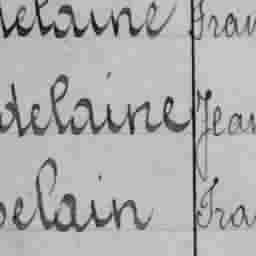 delaine Fran
delaine Jean
pelain Fra